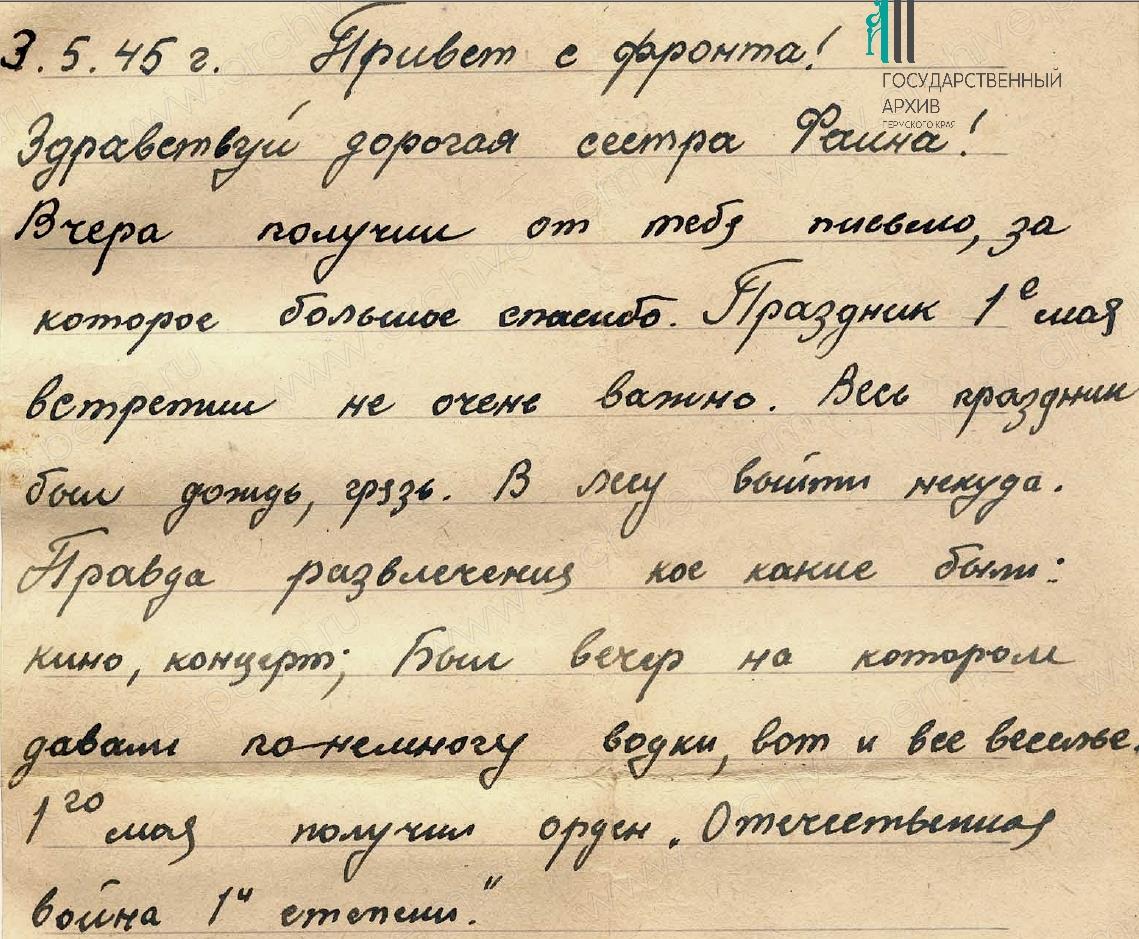 3.5.45 г. Привет с фронта!
ГОСУДАРСТВЕННЫЙ
АРХИВ
ПЕРМСКОГО КРАЯ
Здравствуй дорогая сестра Фаина!
Вчера получил от тебя письмо, за
которое большое спасибо. Праздник 1е мая
встретил не очень важно. Весь праздник
был дождь, грязь. В лесу выйти некуда.
Правда развлечения кое какие были:
кино, концерт; Был вечер на котором
давали по-немногу водки, вот и все веселье.
1го мая получил орден „Отечественная
война 1й степени."